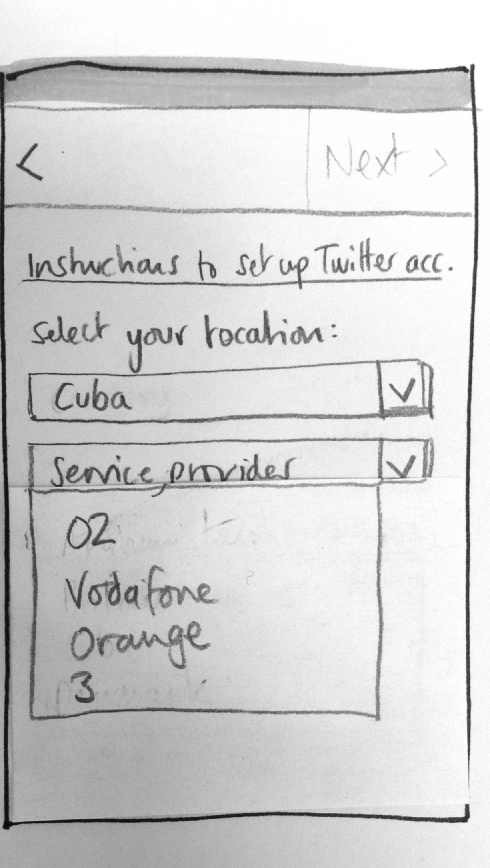 < Next >
Instructions to set up Twitter acc.
Select your location:
Cuba
Service provider
O2
Vodafone
Orange
3